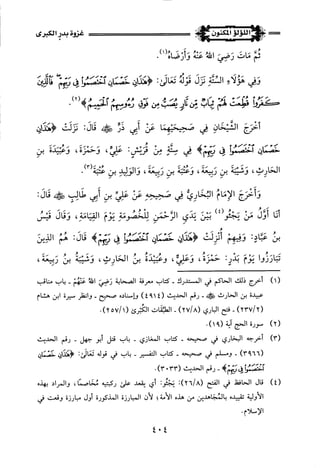 غزوة بدر الكبرى
اللؤلؤ المكنون
ثم مات رضي الله عنه وأرضاه(١).
وفي هؤلاء الستة نزل قوله تعالى: ﴿هَذَانِ خَصْمَانِ اخْتَصَمُوا فِي رَبِّهِمْ فَالَّذِينَ
كَفَرُوا قُطِّعَتْ لَهُمْ ثِيَابٌ مِّن نَّارٍ يُصَبُّ مِن فَوْقِ رُءُوسِهِمُ الْحَمِيمُ﴾(٢).
أخرج الشيخان في صحيحهما عن أبي ذر ﷺ قال: نزلت ﴿هَذَانِ
خَصْمَانِ اخْتَصَمُوا فِي رَبِّهِمْ﴾ في ستة من قريش: علي، وحمزة، وعبيدة بن
الحارث، وشيبة بن ربيعة، وعتبة بن ربيعة، والوليد بن عتبة(٣).
وأخرج الإمام البخاري في صحيحه عن علي بن أبي طالب ﷺ قال:
أنا أول من يجثو(٤) بين يدي الرحمن للخصومة يوم القيامة، وقال قيس
بن عباد: وفيهم أنزلت ﴿هَذَانِ خَصْمَانِ اخْتَصَمُوا فِي رَبِّهِمْ﴾ قال: هم الذين
تبارزوا يوم بدر: حمزة، وعلي، وعبيدة بن الحارث، وشيبة بن ربيعة،
(١) أخرج ذلك الحاكم في المستدرك - كتاب معرفة الصحابة رضي الله عنهم - باب مناقب
عبيدة بن الحارث ﷺ - رقم الحديث (٤٩١٤) وإسناده صحيح - وانظر سيرة ابن هشام
(٢٣٧/٢) - دلائل - الطبقات الكبرى (٢٥٧/١).
(٢) سورة الحج آية (١٩).
(٣) أخرجه البخاري في صحيحه - كتاب المغازي - باب قتل أبي جهل - رقم الحديث
(٣٩٦٦) - ومسلم في صحيحه - كتاب التفسير - باب في قوله تعالى: ﴿هَذَانِ خَصْمَانِ
اخْتَصَمُوا فِي رَبِّهِمْ﴾ - رقم الحديث (٣٠٣٣).
(٤) قال الحافظ في الفتح (٢٦/٨): يجثو: أي يقعد على ركبتيه مخاصما، والمراد بهذه
الأولية تقييده بالمجاهدين من هذه الأمة؛ لأن المبارزة المذكورة أول مبارزة وقعت في
الإسلام.
٤٠٤